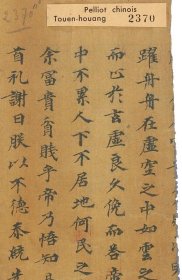 Pelliot chinois
Touen-houang
2370
2370
躍冉冉在虛空之中如雲之
而止於玄虛良久俛而答帝
中不累人下不居地何民之
余富貴貧賤乎帝乃悟知
首礼謝曰朕以不德忝統先